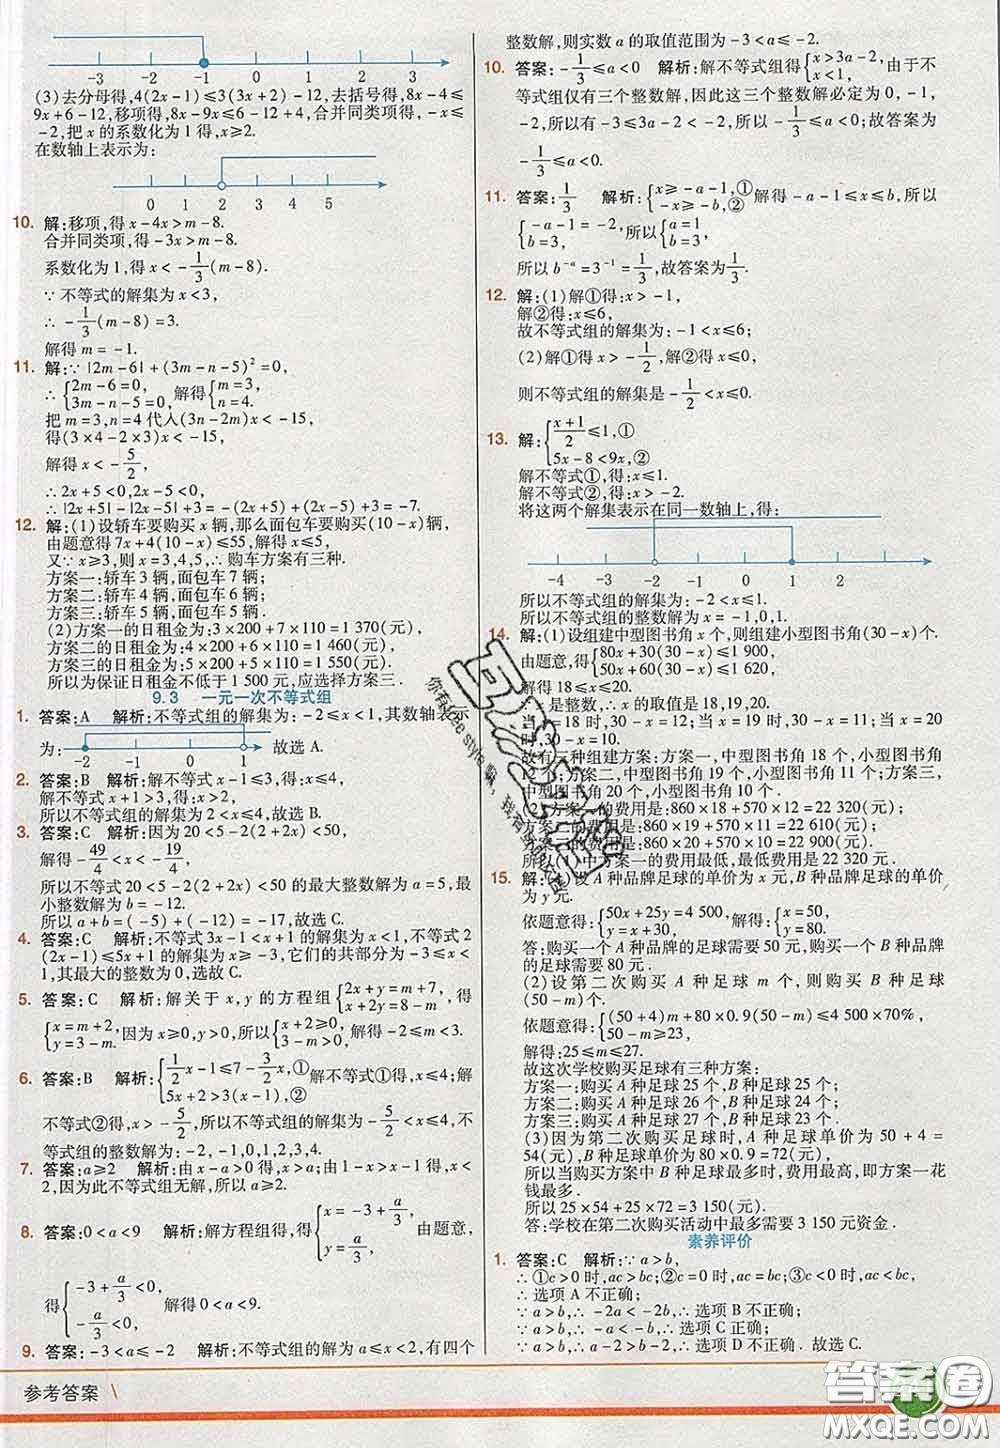 -3 -2 -1 0 1 2 3
(3)去分母得,4(2x-1)≤3(3x+2)-12,去括号得,8x-4≤
9x+6-12,移项得,8x-9x≤6-12+4,合并同类项得,-x≤
-2,把x的系数化为1得,x≥2.
在数轴上表示为:
0 1 2 3 4 5
10. 解:移项,得x-4x>m-8.
合并同类项,得-3x>m-8.
系数化为1,得x<-1/3(m-8).
∵不等式的解集为x<3,
∴-1/3(m-8)=3.
解得m=-1.
11. 解:∵|2m-6|+(3m-n-5)²=0,
∴{2m-6=0, 3m-n-5=0, 解得{m=3, n=4.
把m=3,n=4代入(3n-2m)x<-15,
得(3×4-2×3)x<-15,
解得x<-5/2,
∴2x+5<0,2x-5<0,
∴|2x+5|-|2x-5|+3=-(2x+5)+(2x-5)+3=-7.
12. 解:(1)设轿车要购买x辆,那么面包车要购买(10-x)辆,
由题意得7x+4(10-x)≤55,解得x≤5,
又∵x≥3,则x=3,4,5,∴购车方案有三种.
方案一:轿车3辆,面包车7辆;
方案二:轿车4辆,面包车6辆;
方案三:轿车5辆,面包车5辆.
(2)方案一的日租金为:3×200+7×110=1 370(元),
方案二的日租金为:4×200+6×110=1 460(元),
方案三的日租金为:5×200+5×110=1 550(元),
所以为保证日租金不低于1 500元,应选择方案三.
9.3 一元一次不等式组
1. 答案:A 解析:不等式组的解集为:-2≤x<1,其数轴表示
为: -2 -1 0 1 故选A.
2. 答案:B 解析:解不等式x-1≤3,得:x≤4,
解不等式x+1>3,得:x>2,
所以不等式组的解集为2<x≤4,故选B.
3. 答案:C 解析:因为20<5-2(2+2x)<50,
解得-49/4<x<-19/4,
所以不等式20<5-2(2+2x)<50的最大整数解为a=5,最
小整数解为b=-12.
所以a+b=(-5)+(-12)=-17,故选C.
4. 答案:C 解析:不等式3x-1<x+1的解集为x<1,不等式2
(2x-1)≤5x+1的解集为x≥-3,它们的共部分为-3≤x<
1,其最大的整数为0,选故C.
5. 答案:C 解析:解关于x,y的方程组{2x+y=m+7, x+2y=8-m, 得
{x=m+2, y=3-m, 因为x≥0,y>0,所以{m+2≥0, 3-m>0, 解得-2≤m<3.
6. 答案:B 解析:{1/2x-1≤7-3/2x,① 5x+2>3(x-1),② 解不等式①得,x≤4;解
不等式②得,x>-5/2,所以不等式组的解集为-5/2<x≤4,不
等式组的整数解为:-2,-1,0,1,2,3,4.
7. 答案:a≥2 解析:由x-a>0得,x>a;由1-x>x-1得,x<
2,因为此不等式组无解,所以a≥2.
8. 答案:0<a<9 解析:解方程组得,得{x=-3+a/3, y=-a/3, 由题意,
得{-3+a/3<0, -a/3<0, 解得0<a<9.
9. 答案:-3<a≤-2 解析:不等式组的解集为a≤x<2,有四个
整数解,则实数a的取值范围为-3<a≤-2.
10. 答案:-1/3≤a<0 解析:解不等式组得{x>3a-2, x<1, 由于不
等式组仅有三个整数解,因此这三个整数解必定为0,-1,
-2,所以有-3≤3a-2<-2,所以-1/3≤a<0;故答案为
-1/3≤a<0.
11. 答案:1/3 解析:{x≥-a-1,① -x≥-b,② 解得-a-1≤x≤b,所以
{-a-1=-2, b=3, 所以{a=1, b=3,
所以b⁻ᵃ=3⁻¹=1/3,故答案为1/3.
12. 解:(1)解①得:x>-1,
解②得:x≤6,
故不等式组的解集为:-1<x≤6;
(2)解①得x>-1/2,解②得x≤0,
则不等式组的解集是-1/2<x≤0.
13. 解:{(x+1)/2≤1,① 5x-8<9x,②
解不等式①,得:x≤1.
解不等式②,得:x>-2.
将这两个解集表示在同一数轴上,得:
-4 -3 -2 -1 0 1 2
所以不等式组的解集为:-2<x≤1.
所以不等式组的整数解为:x=-1,0,1.
14. 解:(1)设组建中型图书角x个,则组建小型图书角(30-x)个.
由题意,得{80x+30(30-x)≤1 900, 50x+60(30-x)≤1 620,
解得18≤x≤20.
x是整数,∴x的取值是18,19,20.
当x=18时,30-x=12;当x=19时,30-x=11;当x=20
时,30-x=10.
故有三种组建方案:方案一,中型图书角18个,小型图书角
12个;方案二,中型图书角19个,小型图书角11个;方案三,
中型图书角20个,小型图书角10个.
(2)方案一的费用是:860×18+570×12=22 320(元);
方案二的费用是:860×19+570×11=22 610(元);
方案三的费用是:860×20+570×10=22 900(元).
所以(1)中方案一的费用最低,最低费用是22 320元.
15. 解:(1)设A种品牌足球的单价为x元,B种品牌足球的单价
为y元.
依题意得:{50x+25y=4 500, y=x+30, 解得:{x=50, y=80.
答:购买一个A种品牌的足球需要50元,购买一个B种品牌
的足球需要80元.
(2)设第二次购买A种足球m个,则购买B种足球
(50-m)个.
依题意得:{(50+4)m+80×0.9(50-m)≤4 500×70%, 50-m≥23,
解得:25≤m≤27.
故这次学校购买足球有三种方案:
方案一:购买A种足球25个,B种足球25个;
方案二:购买A种足球26个,B种足球24个;
方案三:购买A种足球27个,B种足球23个.
(3)因为第二次购买足球时,A种足球单价为50+4=
54(元),B种足球单价为80×0.9=72(元),
所以当购买方案中B种足球最多时,费用最高,即方案一花
钱最多.
所以25×54+25×72=3 150(元).
答:学校在第二次购买活动中最多需要3 150元资金.
素养评价
1. 答案:C 解析:∵a>b,
∴①c>0时,ac>bc;②c=0时,ac=bc;③c<0时,ac<bc,
∴选项A不正确;
∵a>b,∴-2a<-2b,∴选项B不正确;
∵a>b,∴-a<-b,∴选项C正确;
∵a>b,∴a-2>b-2,∴选项D不正确.故选C.
参考答案 \
答案圈
MXQE.COM